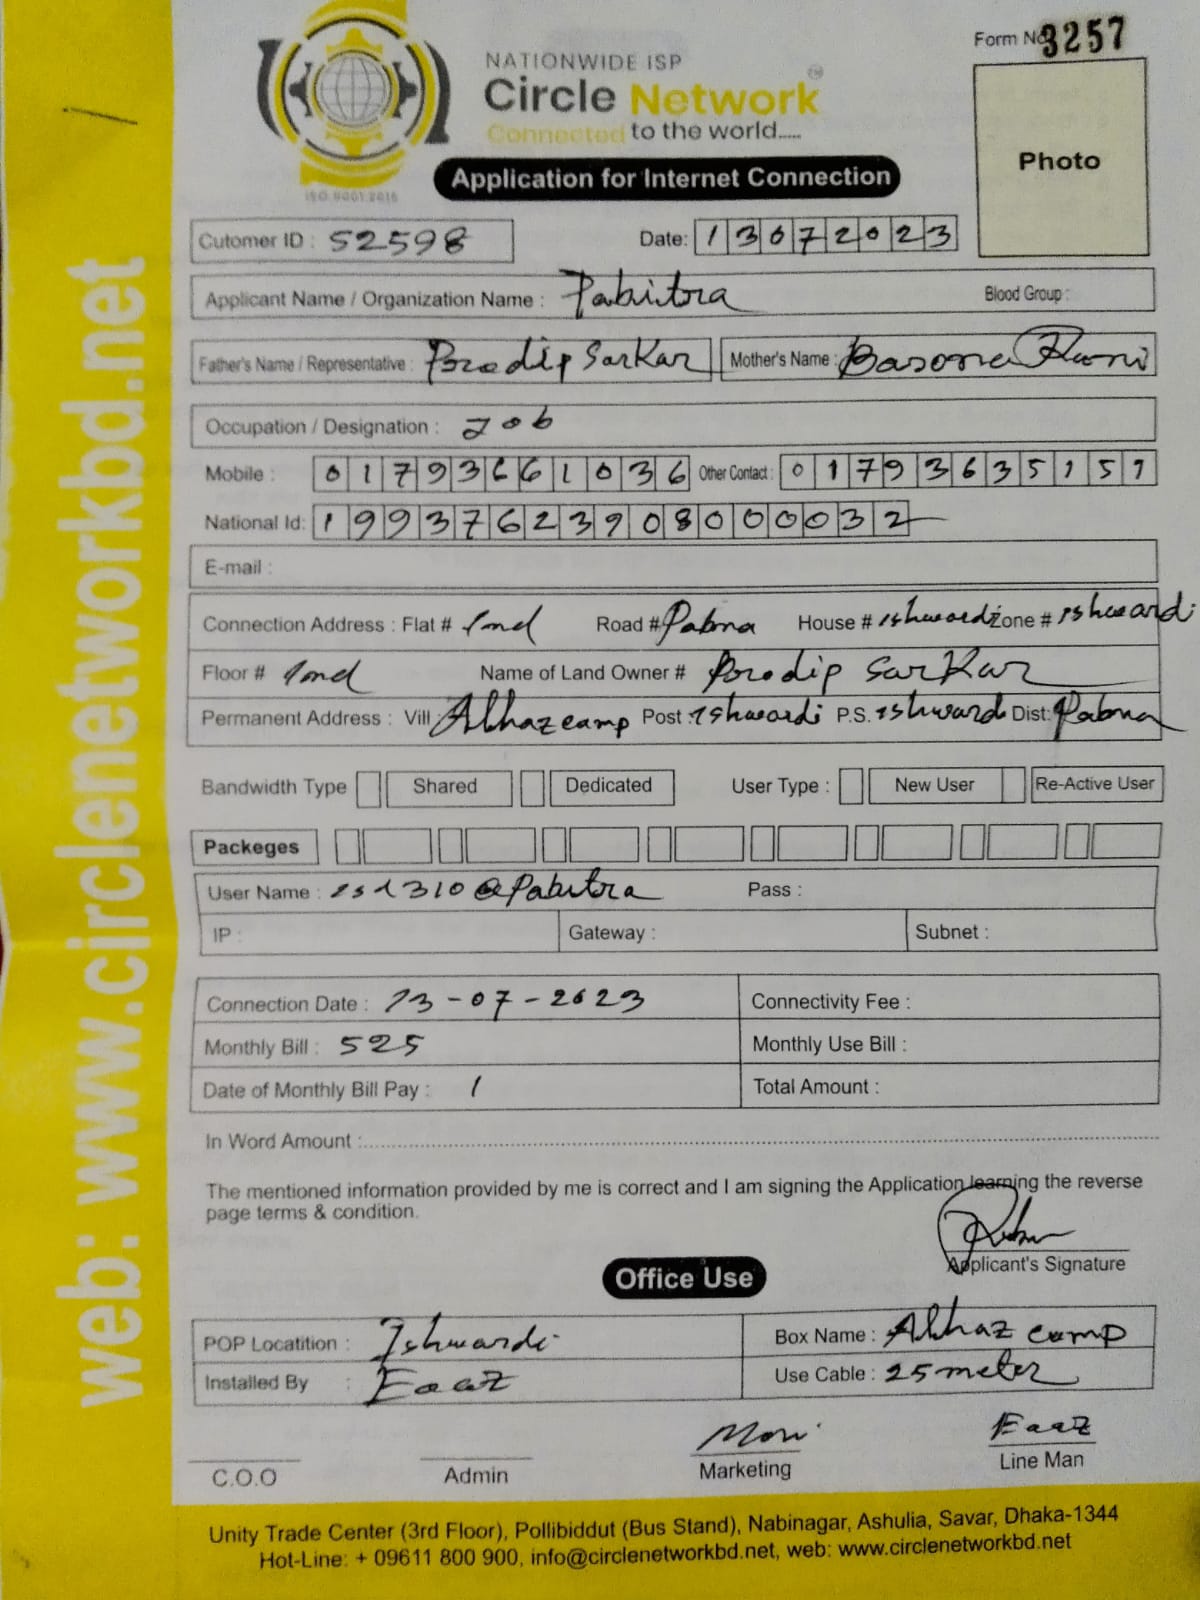 Form No. 3257
NATIONWIDE ISP
Circle Network
Connected to the world.....
ISO 9001:2015
Application for Internet Connection
Photo
Cutomer ID : 52598
Date: 13072023
Applicant Name / Organization Name : Pabitra
Blood Group :
Father's Name / Representative : Prodip Sarkar
Mother's Name : Basona Rani
Occupation / Designation : Job
Mobile : 01793661036 Other Contact : 01793635151
National Id: 19937623908000032
E-mail :
Connection Address : Flat # Road # Pabna House # Ishwardi Zone # Ishwardi
Floor # Name of Land Owner # Prodip Sarkar
Permanent Address : Vill: Alhaz camp Post : Ishwardi P.S. Ishwardi Dist: Pabna
Bandwidth Type Shared Dedicated User Type : New User Re-Active User
Packeges
User Name : @Pabitra Pass :
IP : Gateway : Subnet :
Connection Date : 13-07-2023 Connectivity Fee :
Monthly Bill : 525 Monthly Use Bill :
Date of Monthly Bill Pay : 1 Total Amount :
In Word Amount :
The mentioned information provided by me is correct and I am signing the Application learning the reverse
page terms & condition.
Applicant's Signature
Office Use
POP Locatition : Ishwardi Box Name : Alhaz camp
Installed By : Eaaz Use Cable : 25 meter
Moni Eaaz
C.O.O Admin Marketing Line Man
Unity Trade Center (3rd Floor), Pollibiddut (Bus Stand), Nabinagar, Ashulia, Savar, Dhaka-1344
Hot-Line: + 09611 800 900, info@circlenetworkbd.net, web: www.circlenetworkbd.net
web: www.circlenetworkbd.net